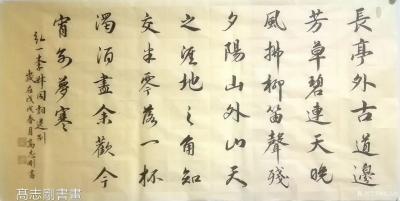 長亭外古道邊
芳草碧連天晚
風拂柳笛聲殘
夕陽山外山天
之涯地之角知
交半零落一杯
濁酒盡余歡今
宵別夢寒
弘一李叔同詞送別
歲在戊戌春月高志剛書
髙志剛書畫